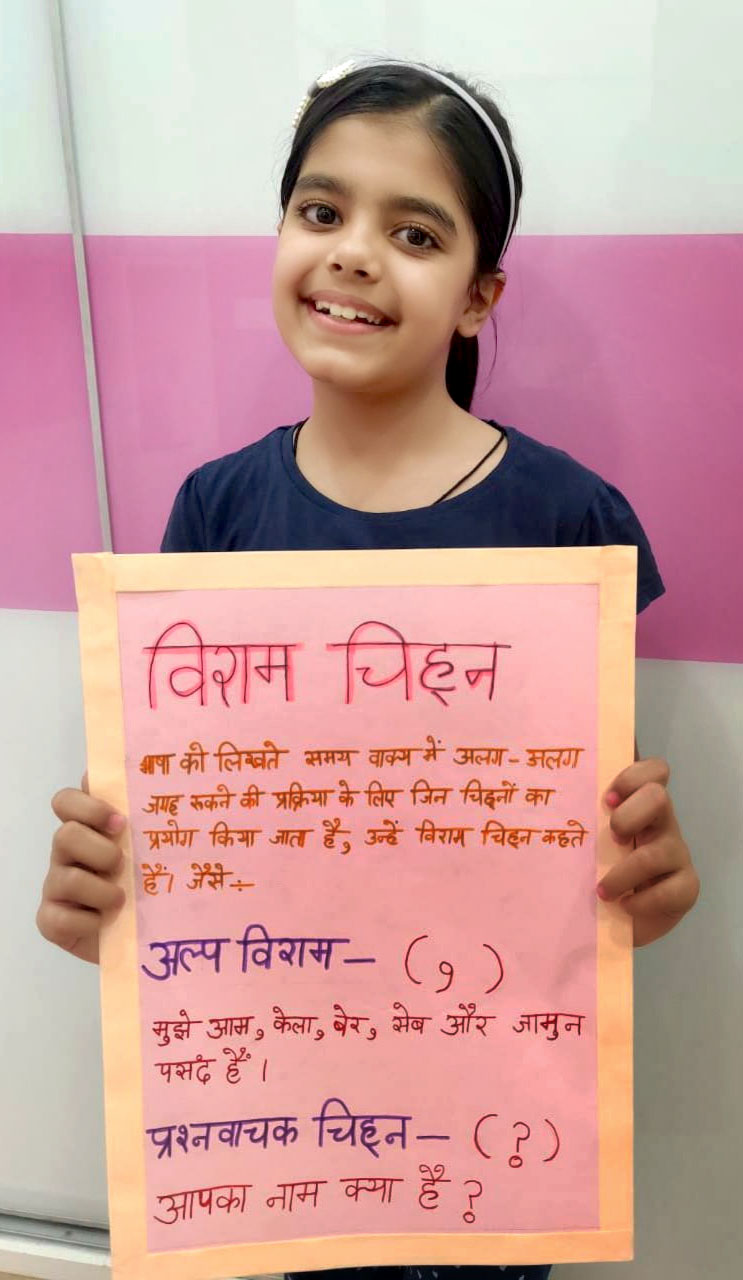 विराम चिह्न
भाषा को लिखते समय वाक्य में अलग-अलग
जगह रुकने की प्रक्रिया के लिए जिन चिह्नों का
प्रयोग किया जाता है, उन्हें विराम चिह्न कहते
हैं। जैसे÷
अल्प विराम - ( , )
मुझे आम, केला, बेर, सेब और जामुन
पसंद हैं ।
प्रश्नवाचक चिह्न - ( ? )
आपका नाम क्या है ?